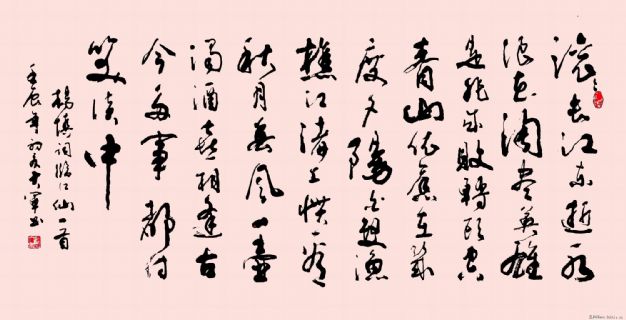 滚滚长江东逝水
浪花淘尽英雄
是非成败转头空
青山依旧在几
度夕阳白发渔
樵江渚上惯看
秋月春风一壶
浊酒喜相逢古
今多事都付
笑谈中
杨慎词临江仙一首
壬辰年初夏大军书